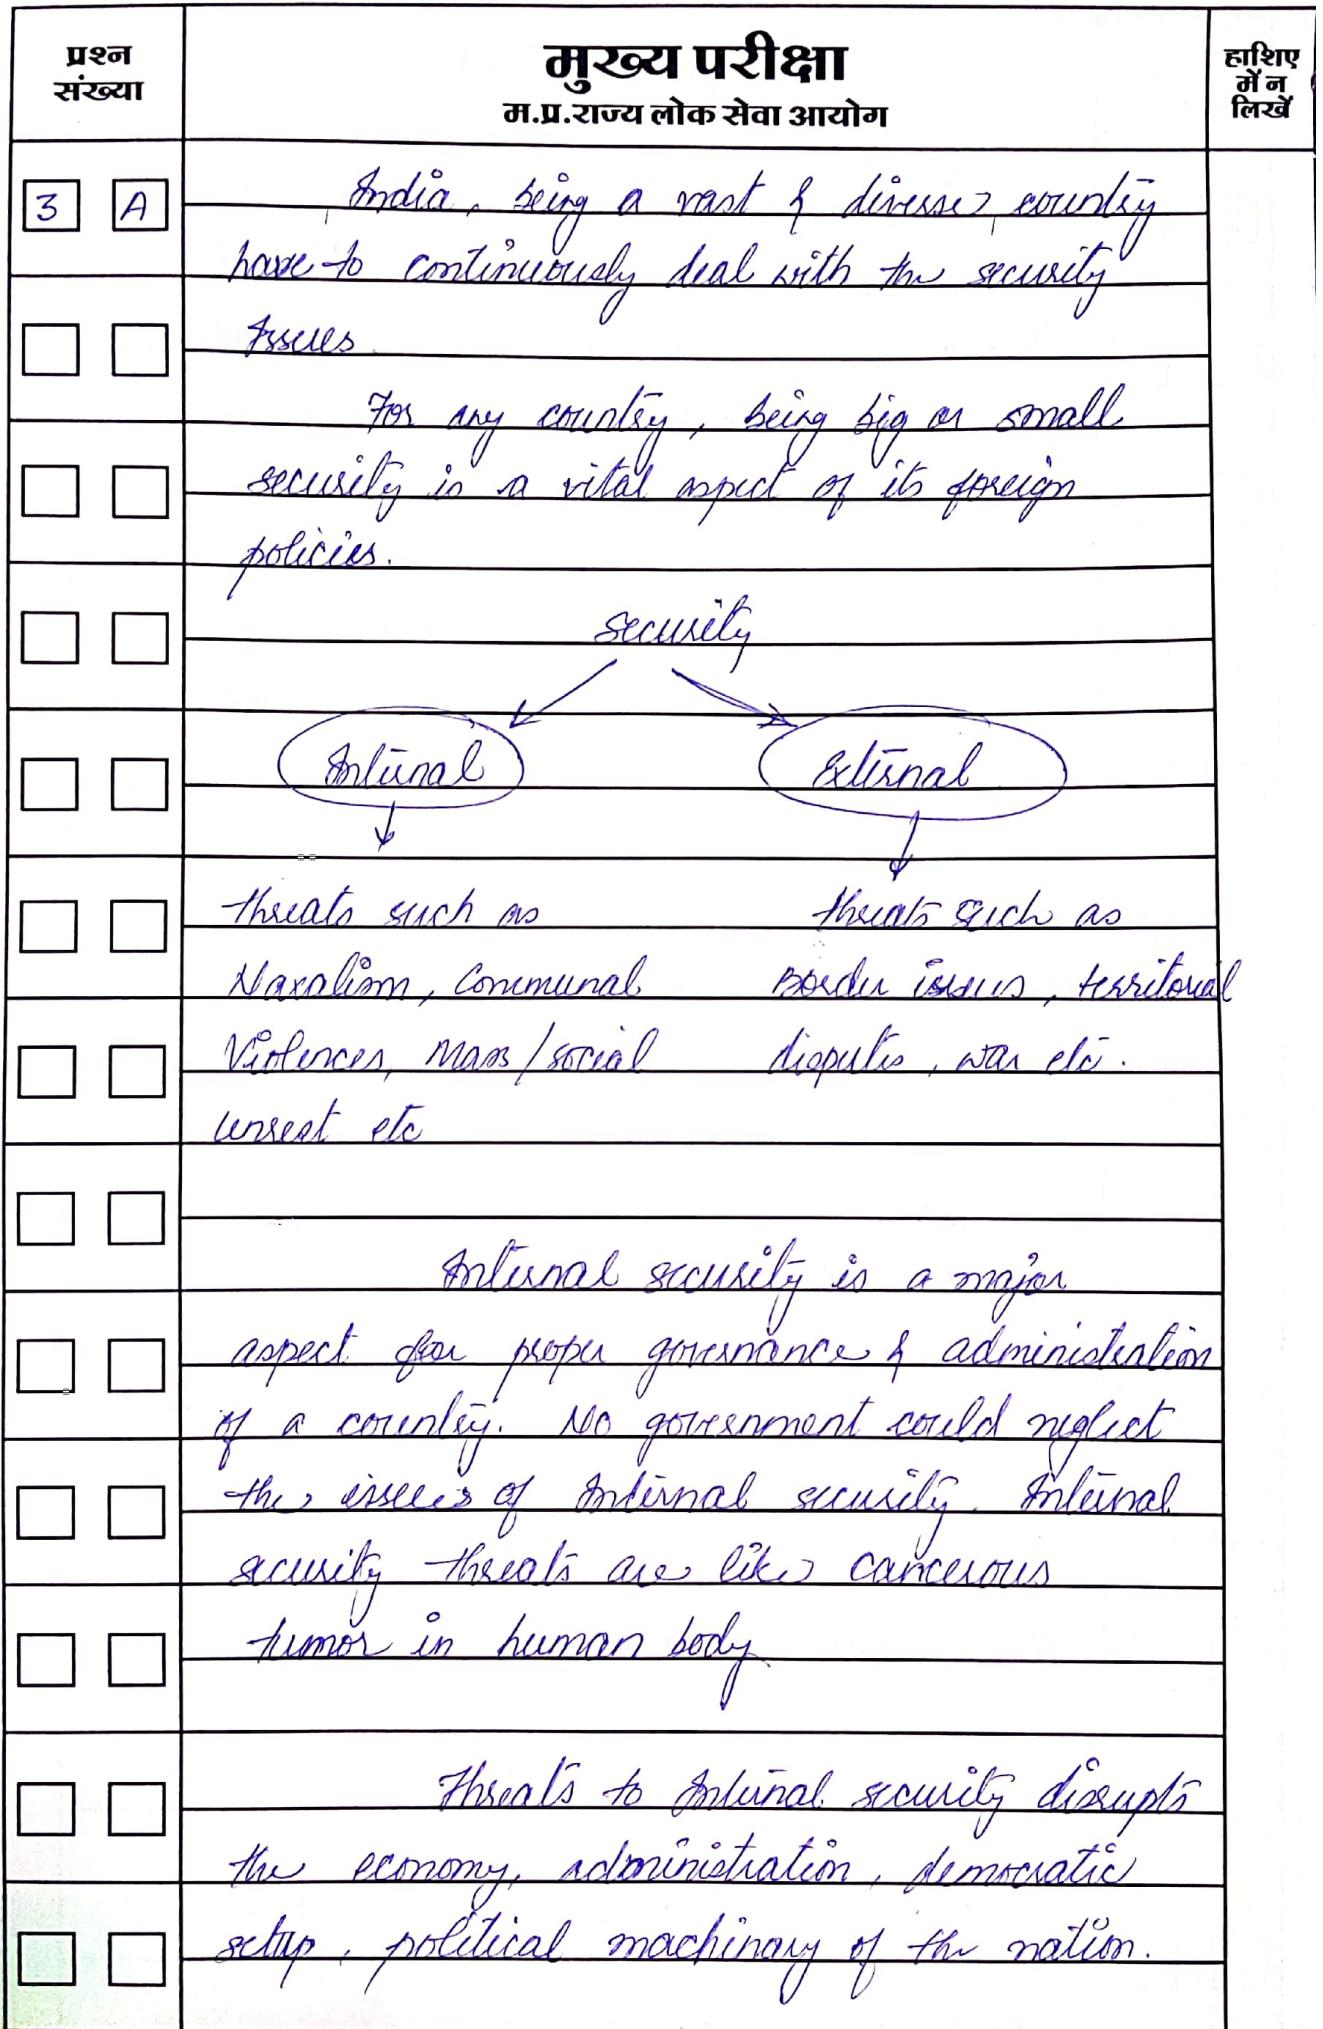 प्रश्न
संख्या
मुख्य परीक्षा
म.प्र.राज्य लोक सेवा आयोग
हाशिए
में न
लिखें
3 A
India, being a vast & diverse, country
have to continuously deal with the security
Issues
For any country, being big or small
security is a vital aspect of its foreign
policies.
security
Internal External
threats such as threats such as
Naxalism, Communal Border issues, territorial
Violences, Mass/social disputes, war etc.
unrest etc
Internal security is a major
aspect for proper governance & administration
of a country. No government could neglect
the issues of Internal security. Internal
security threats are like cancerous
tumor in human body
Threats to Internal security disrupts
the economy, administration, democratic
setup, political machinary of the nation.